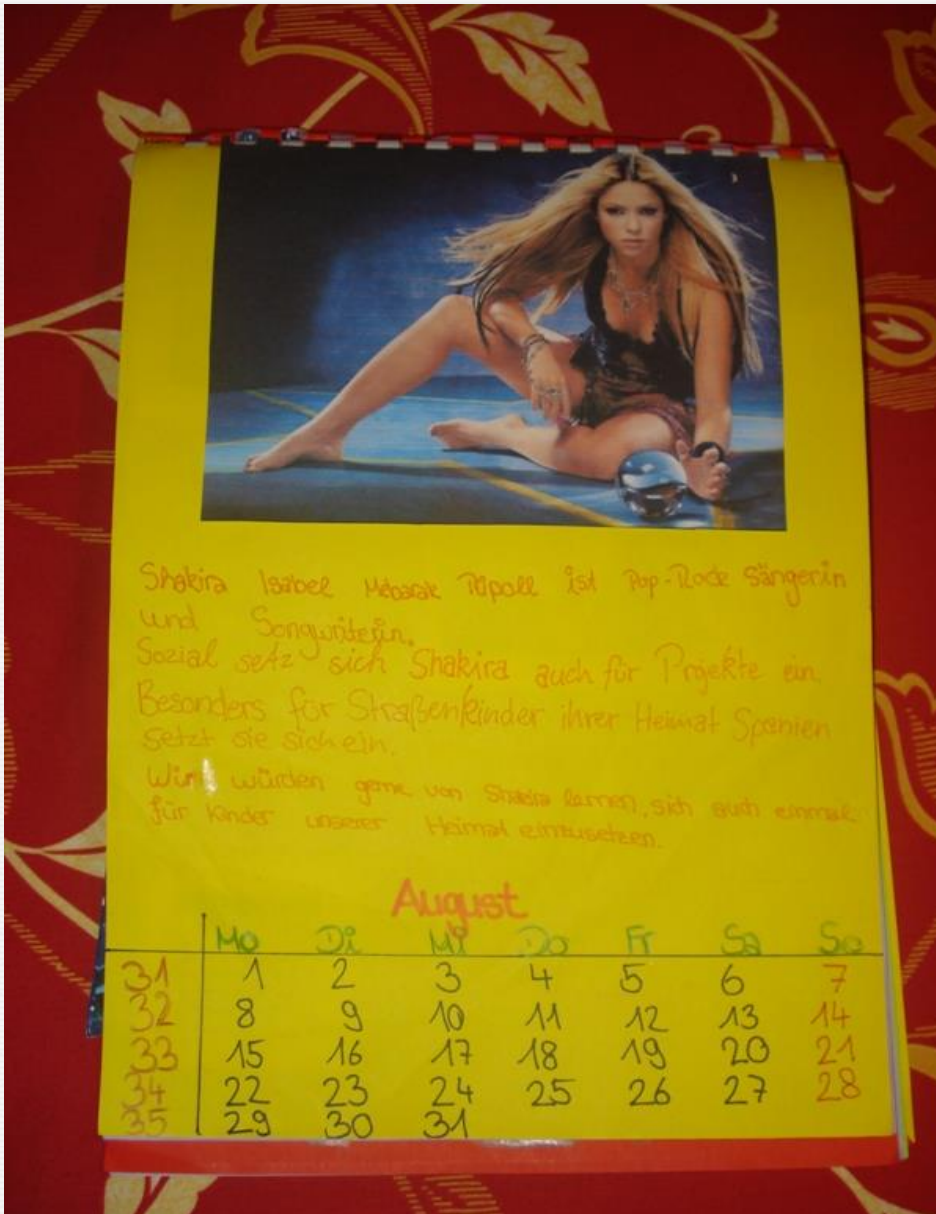 Shakira Isabel Mebarak Ripoll ist Pop-Rock Sängerin
und Songwriterin.
Sozial setz sich Shakira auch für Projekte ein.
Besonders für Straßenkinder ihrer Heimat Spanien
setzt sie sich ein.
Wir würden gerne von Shakira lernen, sich auch einmal
für Kinder unserer Heimat einzusetzen.
August
Mo Di Mi Do Fr Sa So
31 1 2 3 4 5 6 7
32 8 9 10 11 12 13 14
33 15 16 17 18 19 20 21
34 22 23 24 25 26 27 28
35 29 30 31